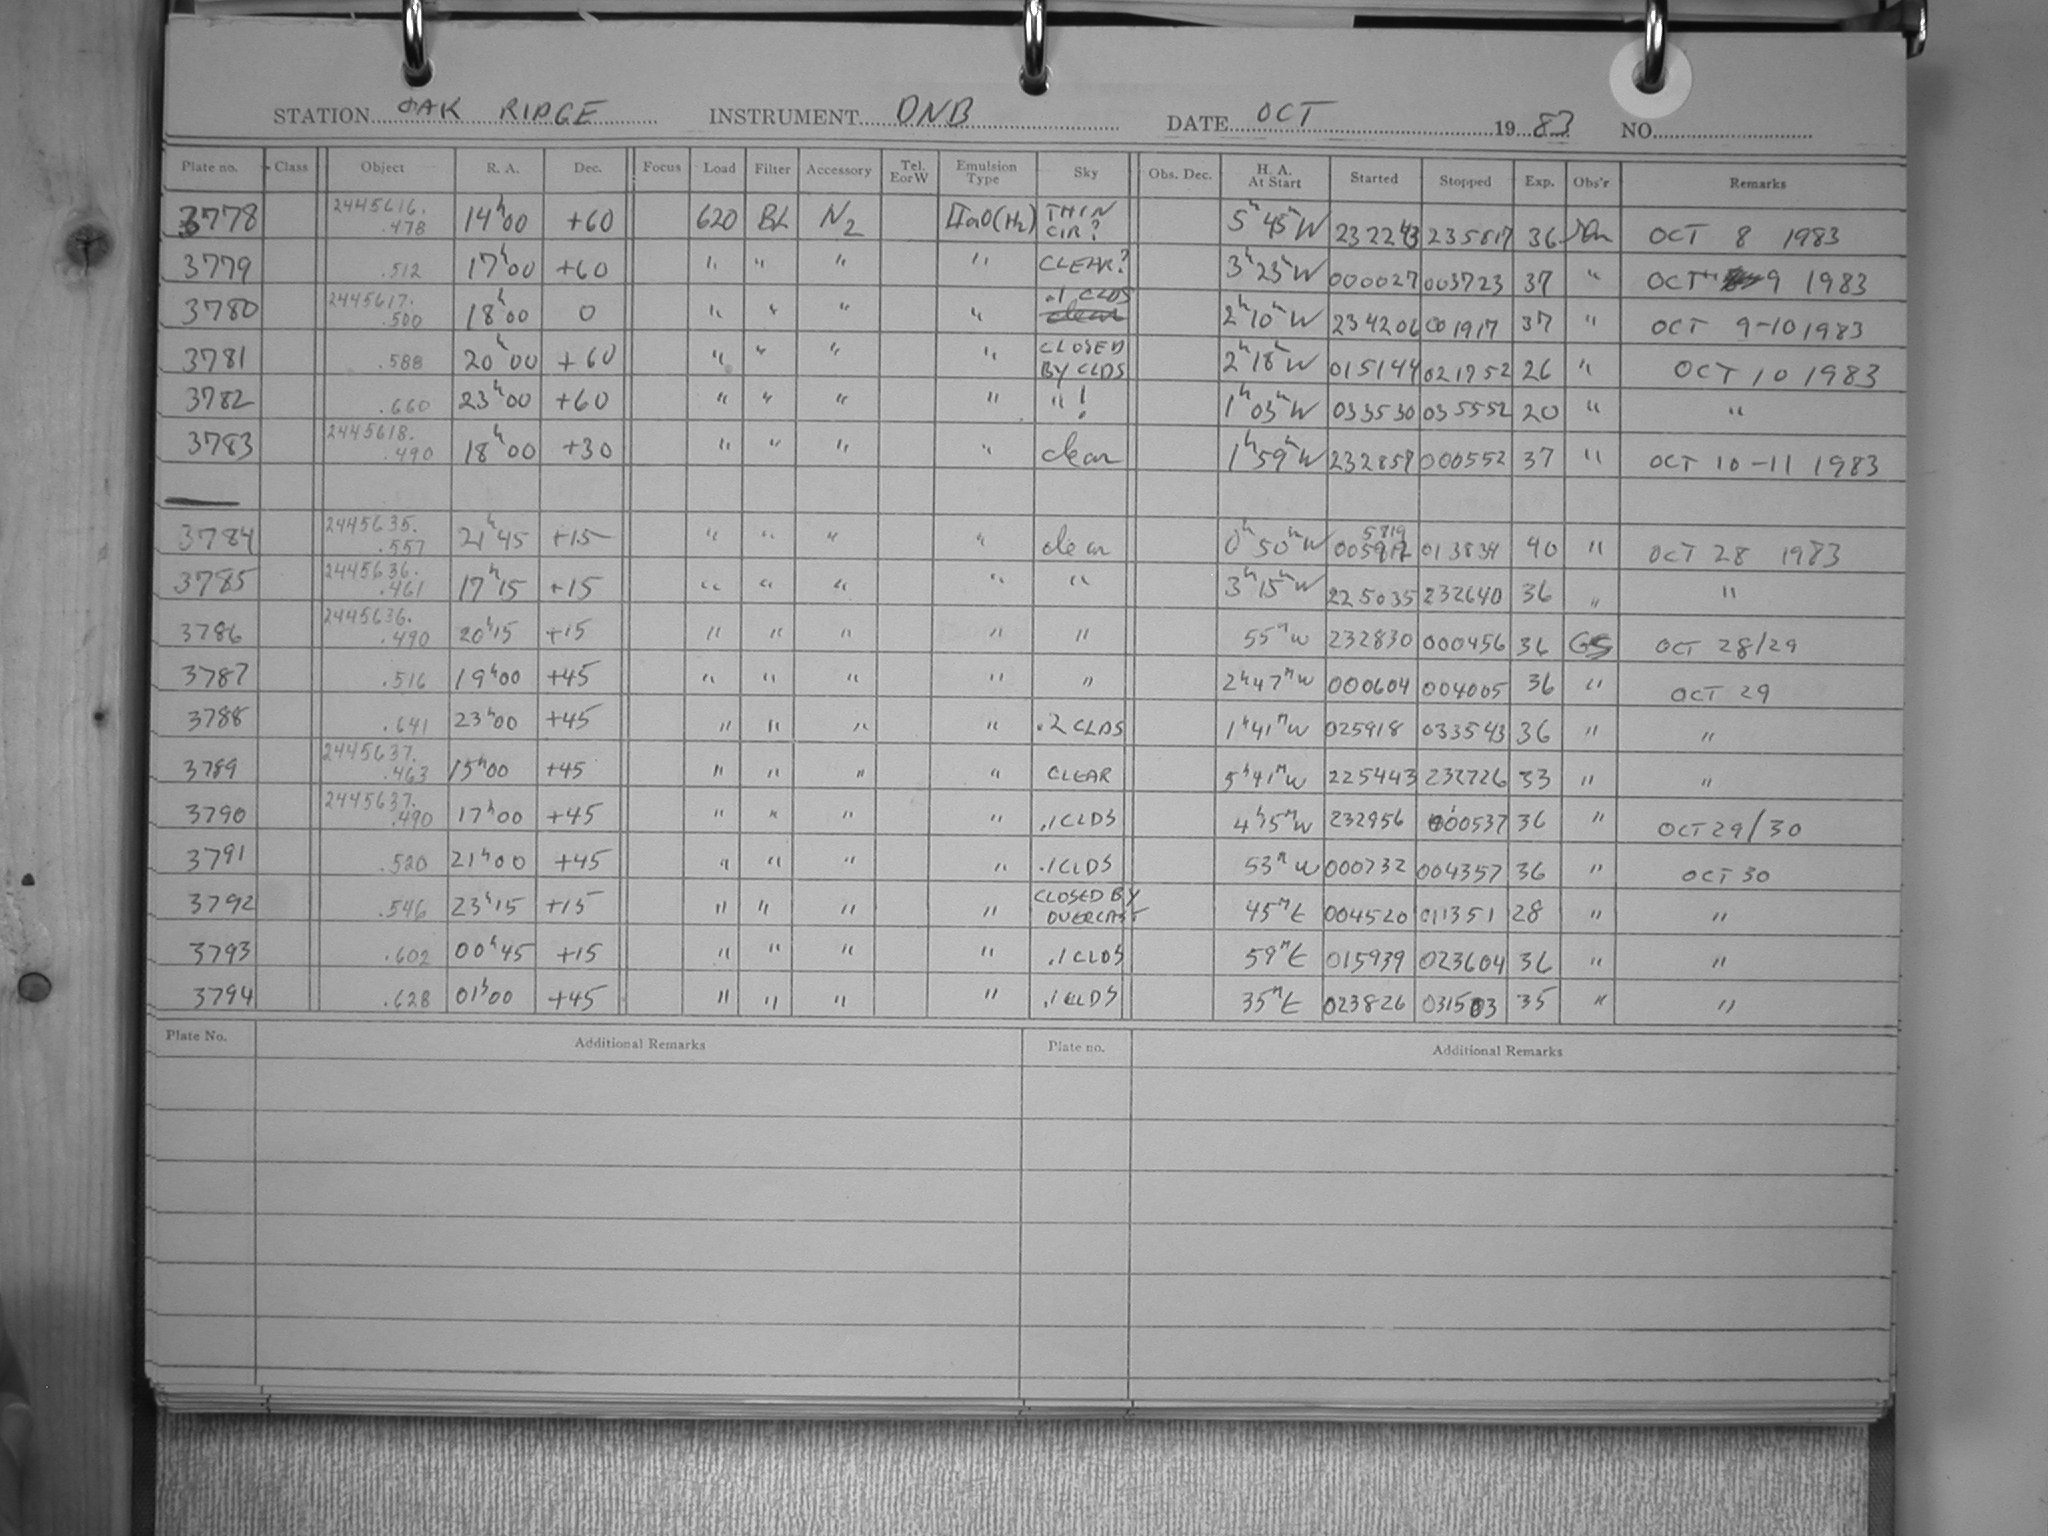 STATION OAK RIDGE INSTRUMENT DNB DATE OCT 1983 NO.
Plate no. Class Object R. A. Dec. Focus Load Filter Accessory Tel. E or W Emulsion Type Sky Obs. Dec. H. A. At Start Started Stopped Exp. Obs'r Remarks
3778 2445616.478 14ʰ00 +60 620 BL N₂ IIaO(H₂) THIN CIR? 5ʰ45ᵐW 232243 235817 36 OCT 8 1983
3779 .512 17ʰ00 +60 " " " " CLEAR? 3ʰ23ᵐW 000027 003723 37 " OCT 9 1983
3780 2445617.500 18ʰ00 0 " " " " .1 CLDS 2ʰ10ᵐW 234206 001917 37 " OCT 9-10 1983
3781 .588 20ʰ00 +60 " " " " CLOSED BY CLDS 2ʰ18ᵐW 015144 021752 26 " OCT 10 1983
3782 .660 23ʰ00 +60 " " " " " ! 1ʰ03ᵐW 033530 035552 20 " "
3783 2445618.490 18ʰ00 +30 " " " " clear 1ʰ59ᵐW 232859 000552 37 " OCT 10-11 1983
3784 2445635.557 21ʰ45 +15 " " " " clear 0ʰ50ᵐW 5819 013834 40 " OCT 28 1983
3785 2445636.461 17ʰ15 +15 " " " " " 3ʰ15ᵐW 225035 232640 36 " "
3786 2445636.490 20ʰ15 +15 " " " " " 55ᵐW 232830 000456 36 GS OCT 28/29
3787 .516 19ʰ00 +45 " " " " " 2ʰ47ᵐW 000604 004005 36 " OCT 29
3788 .641 23ʰ00 +45 " " " " .2 CLDS 1ʰ41ᵐW 025918 033543 36 " "
3789 2445637.463 15ʰ00 +45 " " " " CLEAR 5ʰ41ᵐW 225443 232726 33 " "
3790 2445637.490 17ʰ00 +45 " " " " .1 CLDS 4ʰ15ᵐW 232956 000537 36 " OCT 29/30
3791 .520 21ʰ00 +45 " " " " .1 CLDS 53ᵐW 000732 004357 36 " OCT 30
3792 .546 23ʰ15 +15 " " " " CLOSED BY OVERCAST 45ᵐE 004520 011351 28 " "
3793 .602 00ʰ45 +15 " " " " .1 CLDS 59ᵐE 015939 023604 36 " "
3794 .628 01ʰ00 +45 " " " " .1 CLDS 35ᵐE 023826 031503 35 " "
Plate No. Additional Remarks Plate no. Additional Remarks